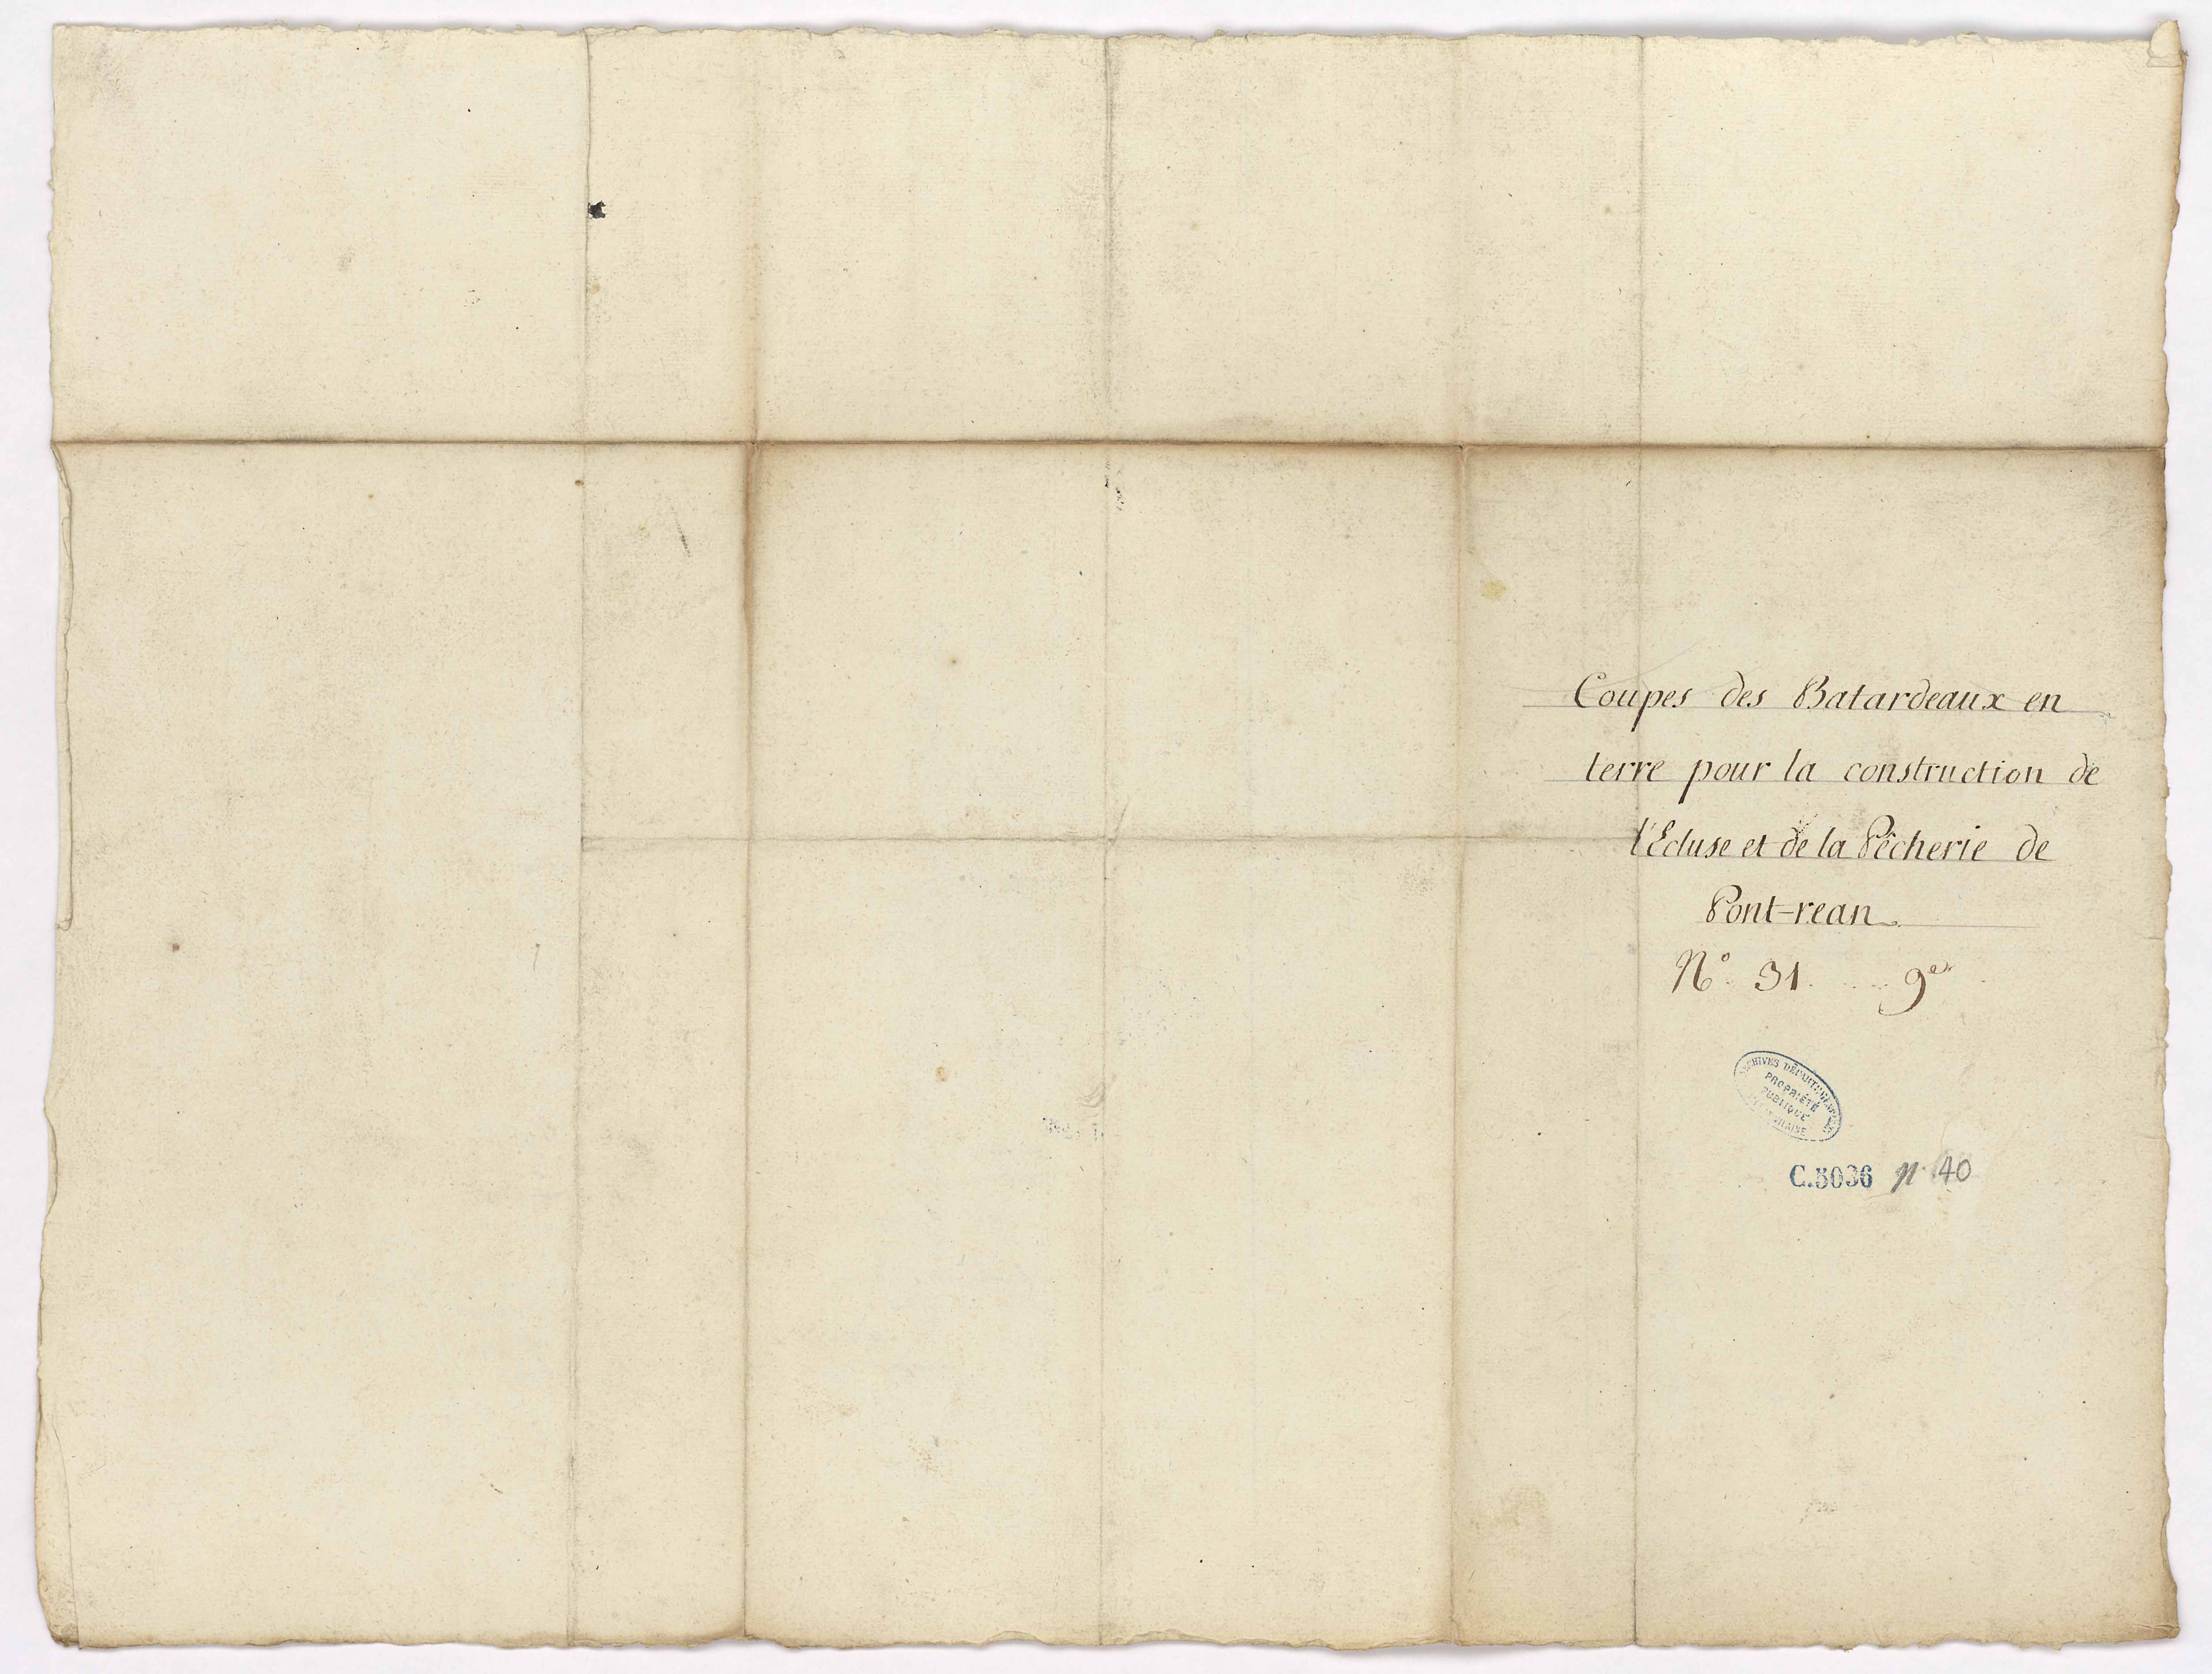 Coupes des Batardeaux en
terre pour la construction de
l'Ecluse et de la Pêcherie de
Pont-rean
N° 31. 9e
ARCHIVES DÉPARTEMENTALES
PROPRIÉTÉ
PUBLIQUE
VILAINE
C.5036 n° 40